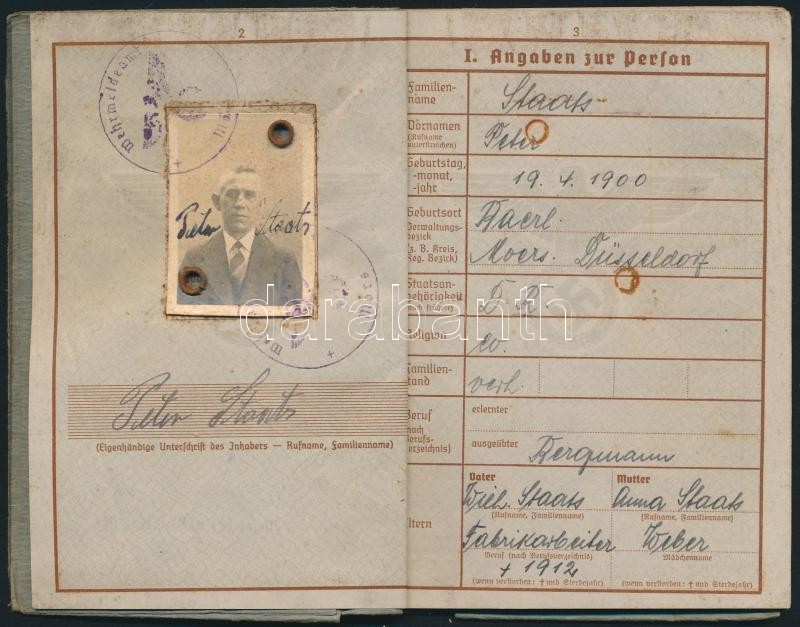 2
Wehrmeldeamt
Peter Staats
Peter Staats
(Eigenhändige Unterschrift des Inhabers — Rufname, Familienname)
3
I. Angaben zur Person
Familien-
name
Staats
Vornamen
(Rufname
unterstreichen)
Peter
Geburtstag,
-monat,
-jahr
19. 4. 1900
Geburtsort
Verwaltungs-
bezirk
(z. B. Kreis,
Reg. Bezirk)
Baerl.
Moers. Düsseldorf
Staatsan-
gehörigkeit
(auch frühere)
D. R.
Religion
ev.
Familien-
stand
verh.
Beruf
(nach
Berufs-
verzeichnis)
erlernter
ausgeübter
Bergmann
Eltern
Vater
Mutter
Wilh. Staats
Anna Staats
(Rufname, Familienname)
(Rufname, Familienname)
Fabrikarbeiter
Weber
Beruf (nach Berufsverzeichnis)
Mädchenname
+ 1912
(wenn verstorben: † und Sterbejahr)
(wenn verstorben: † und Sterbejahr)
darabanth